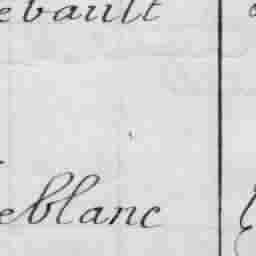 ebault
eblanc